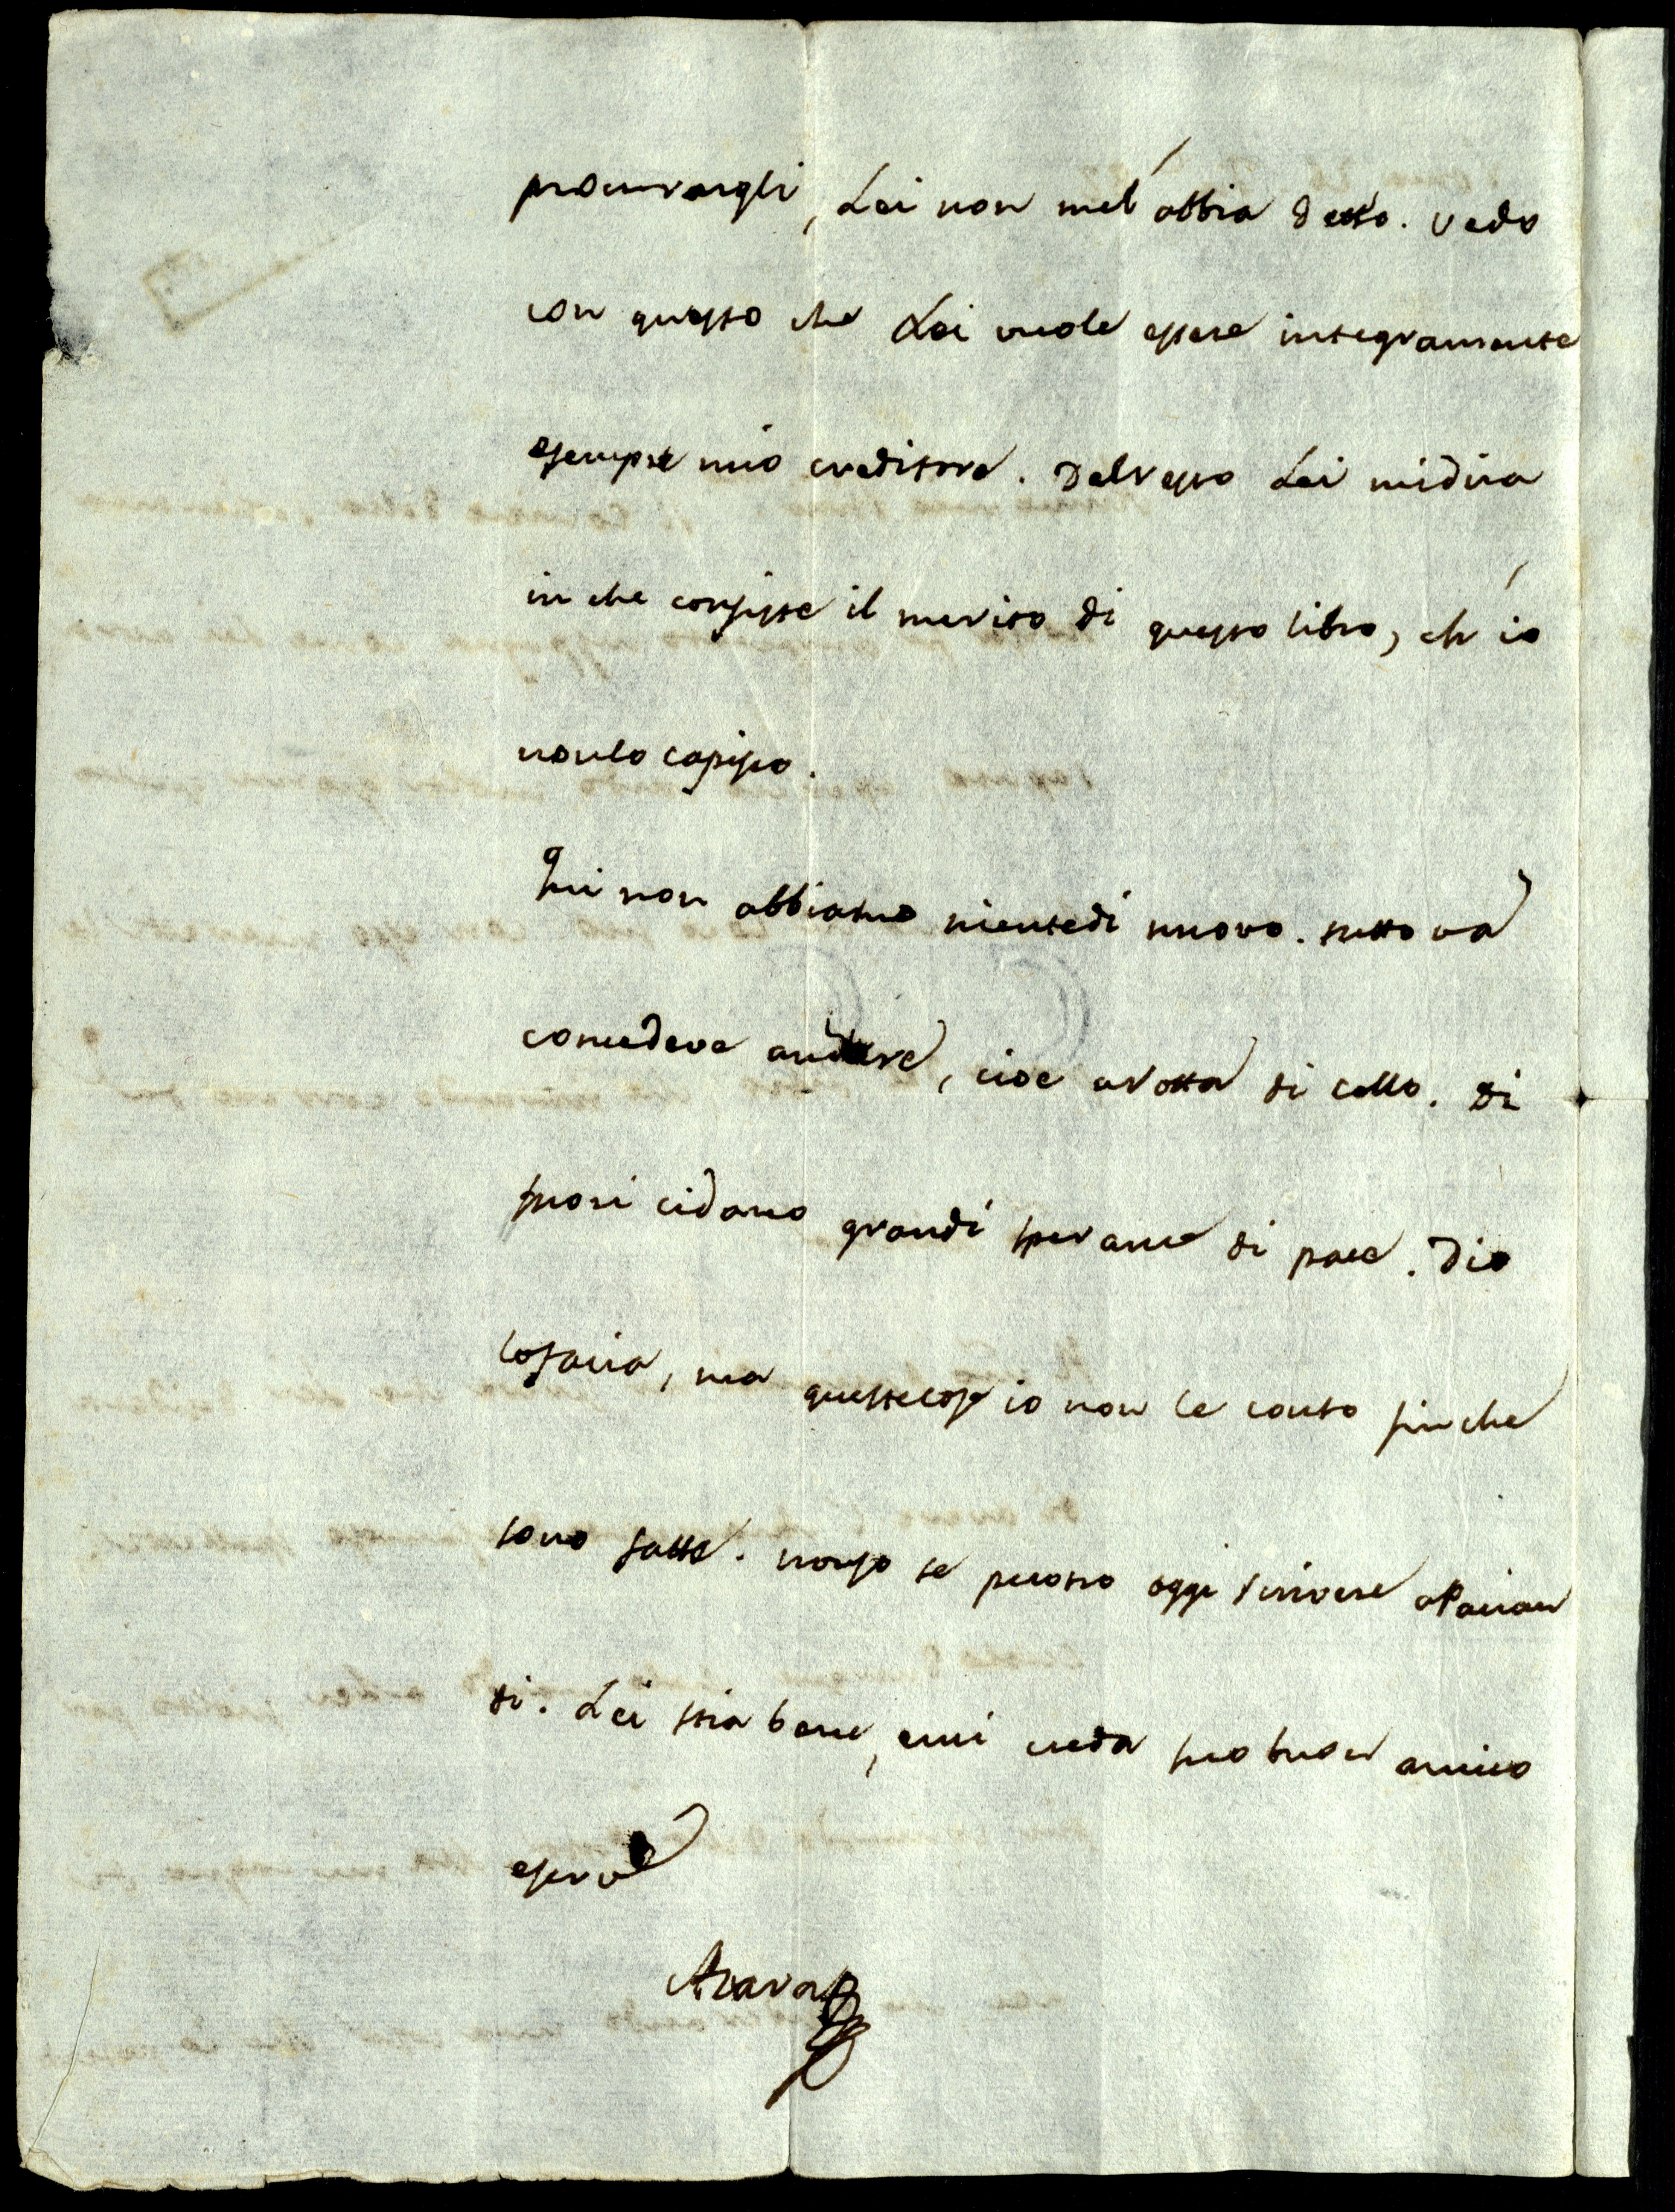 procurargli, Lei non mel'abbia detto. vedo
con questo che Lei vuole essere integramente
esempre mio creditore. Delresto Lei midira
in che consiste il merito di questo libro, ch'io
nonlo capisco.
Qui non abbiamo nientedi nuovo. tutto va
comedeve andare, cioe arotta di collo. Di
fuori cidano grandi speranze di pace. Dio
lofaccia, ma questecose io non le conto finche
sono fatte. nonso se potro oggi scrivere aPaciau
di. Lei stia bene, emi creda suo buon amico
eserv^e
Azara